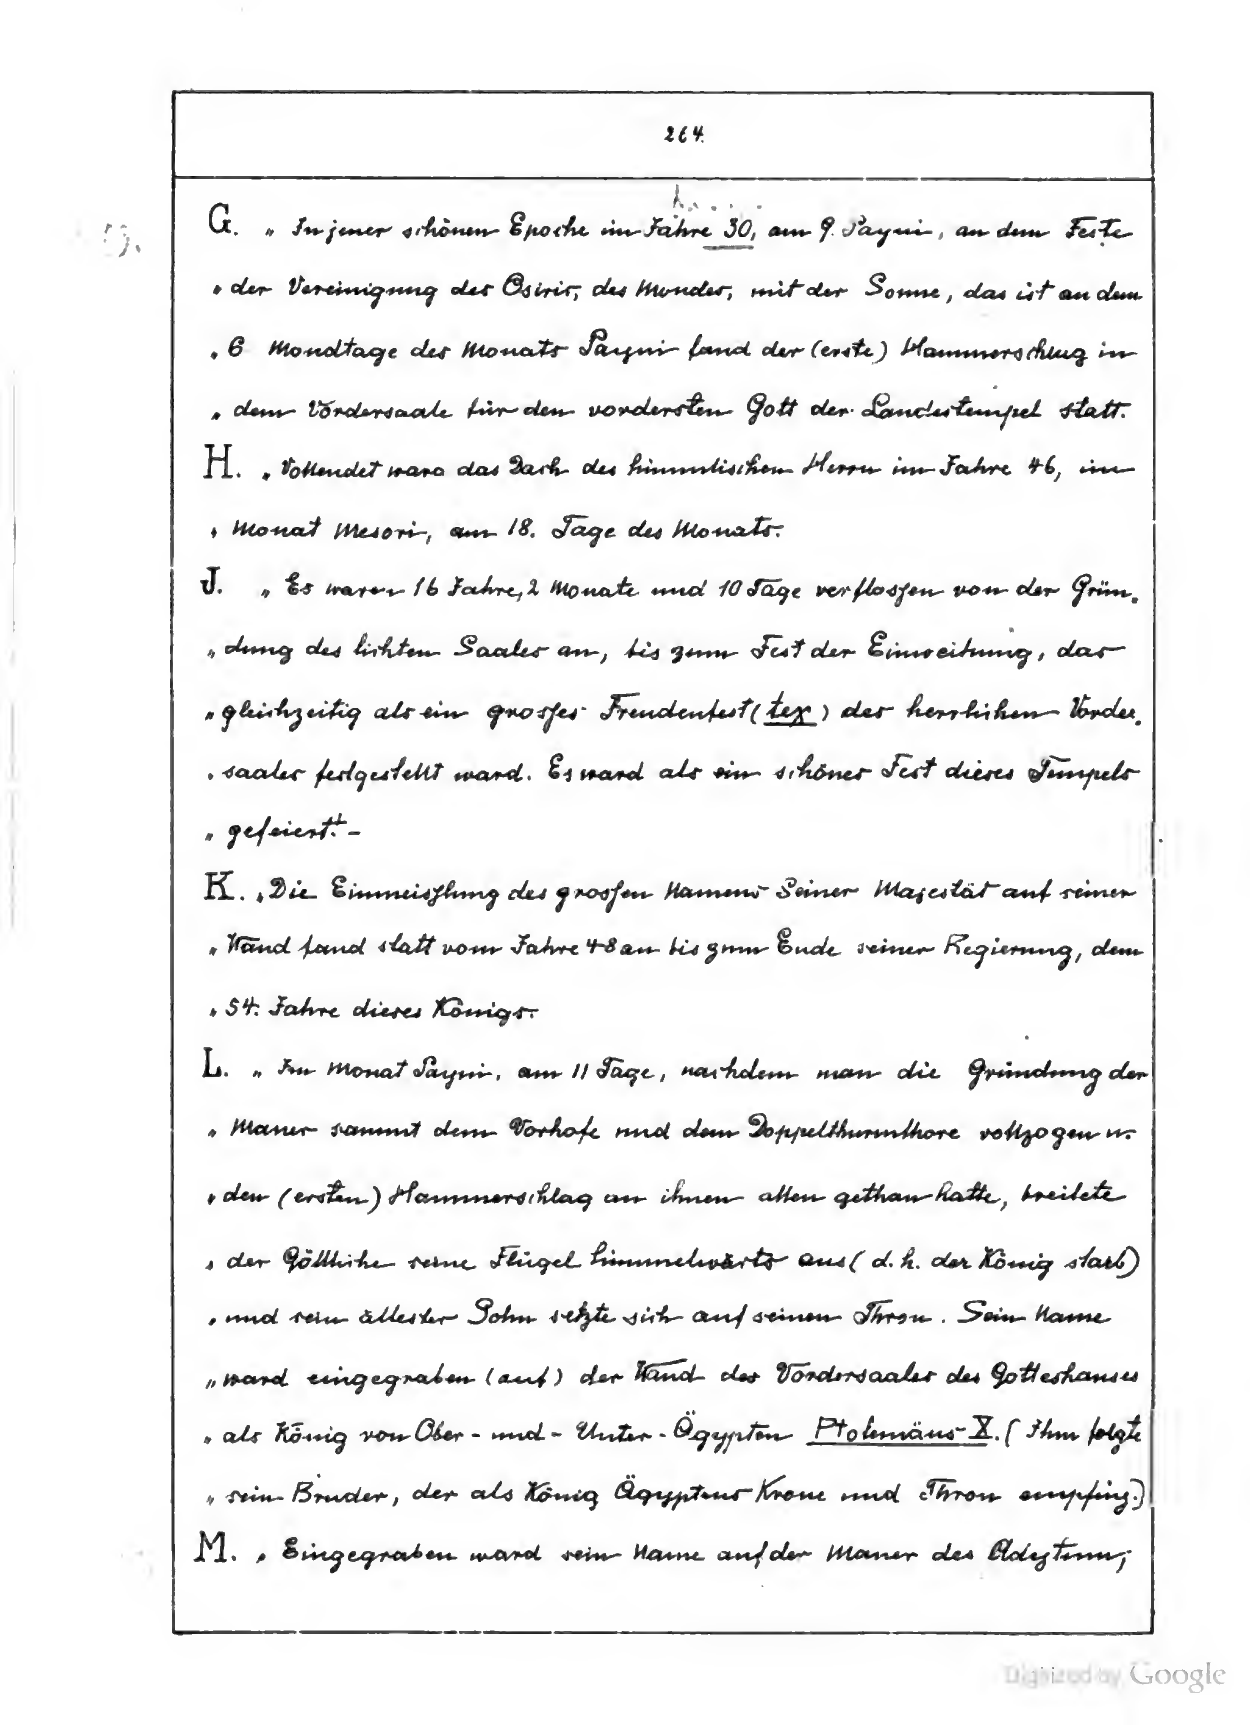 264.
G. „ In jener schönen Epoche im Jahre 30, am 9. Payni, an dem Feste
„ der Vereinigung des Osiris, des Mondes, mit der Sonne, das ist an dem
„ 6 Mondtage des Monats Payni fand der (erste) Hammerschlag in
„ dem Vordersaale für den vordersten Gott der Landestempel statt.
H. „ Vollendet ward das Dach des himmlischen Herrn im Jahre 46, im
„ Monat Mesori, am 18. Tage des Monats.
J. „ Es waren 16 Jahre, 2 Monate und 10 Tage verflossen von der Grün„
„ dung des lichten Saales an, bis zum Fest der Einweihung, das
„ gleichzeitig als ein grosses Freudenfest (tex) des herrlichen Vorder„
„ saales festgestellt ward. Es ward als ein schönes Fest dieses Tempels
„ gefeiert." -
K. „ Die Einmeisslung des grossen Namens Seiner Majestät auf seiner
„ Wand fand statt vom Jahre 48 an bis zum Ende seiner Regierung, dem
„ 54. Jahre dieses Königs.
L. „ Im Monat Payni, am 11 Tage, nachdem man die Gründung der
„ Mauer sammt dem Vorhofe und dem Doppelthurmthore vollzogen u.
„ den (ersten) Hammerschlag an ihnen allen gethan hatte, breitete
„ der Göttliche seine Flügel himmelwärts aus (d. h. der König starb)
„ und sein ältester Sohn setzte sich auf seinen Thron. Sein Name
„ ward eingegraben (auf) der Wand des Vordersaales des Gotteshauses
„ als König von Ober- und- Unter- Ägypten Ptolemäus X. (Ihm folgte
„ sein Bruder, der als König Ägyptens Krone und Thron empfing.)
M. „ Eingegraben ward sein Name auf der Mauer des Adytum;
Digitized by Google